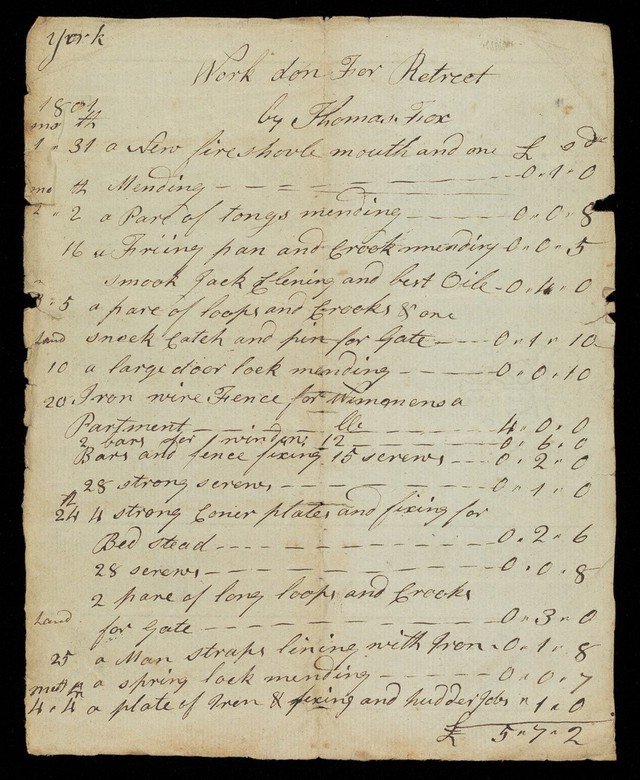 York
Work don For Retreet
by Thomas Fox
1801
mo th £ s d
1 " 31 a New fire shovle mouth and one
Mending 0 " 1 " 0
mo th
2 " 2 a Pare of tongs mending 0 " 0 " 8
16 a Friing pan and Crook mending 0 " 0 " 5
Smook Jack Clening and best Oile 0 " 4 " 0
5 a pare of loops and Crooks & one
Land sneck Catch and pin for Gate 0 " 1 " 10
10 a large door lock mending 0 " 0 " 10
20 Iron wire Fence for Wimmens a
Partment 4 " 0 " 0
2 bars for 1 window 12 0 " 6 " 0
Bars and fence fixing 15 screws 0 " 2 " 0
28 strong screws 0 " 1 " 0
th
24 4 strong Coner plates and fixing for
Bed stead 0 " 2 " 6
28 screws 0 " 0 " 8
2 pare of long loops and Crooks
Land for Gate 0 " 3 " 0
25 a Man straps lining with Iron 0 " 1 " 8
a spring lock mending 0 " 0 " 7
4 " 4 a plate of Iron & fixing and hudder Jobs " 1 " 0
£ 5 " 7 " 2